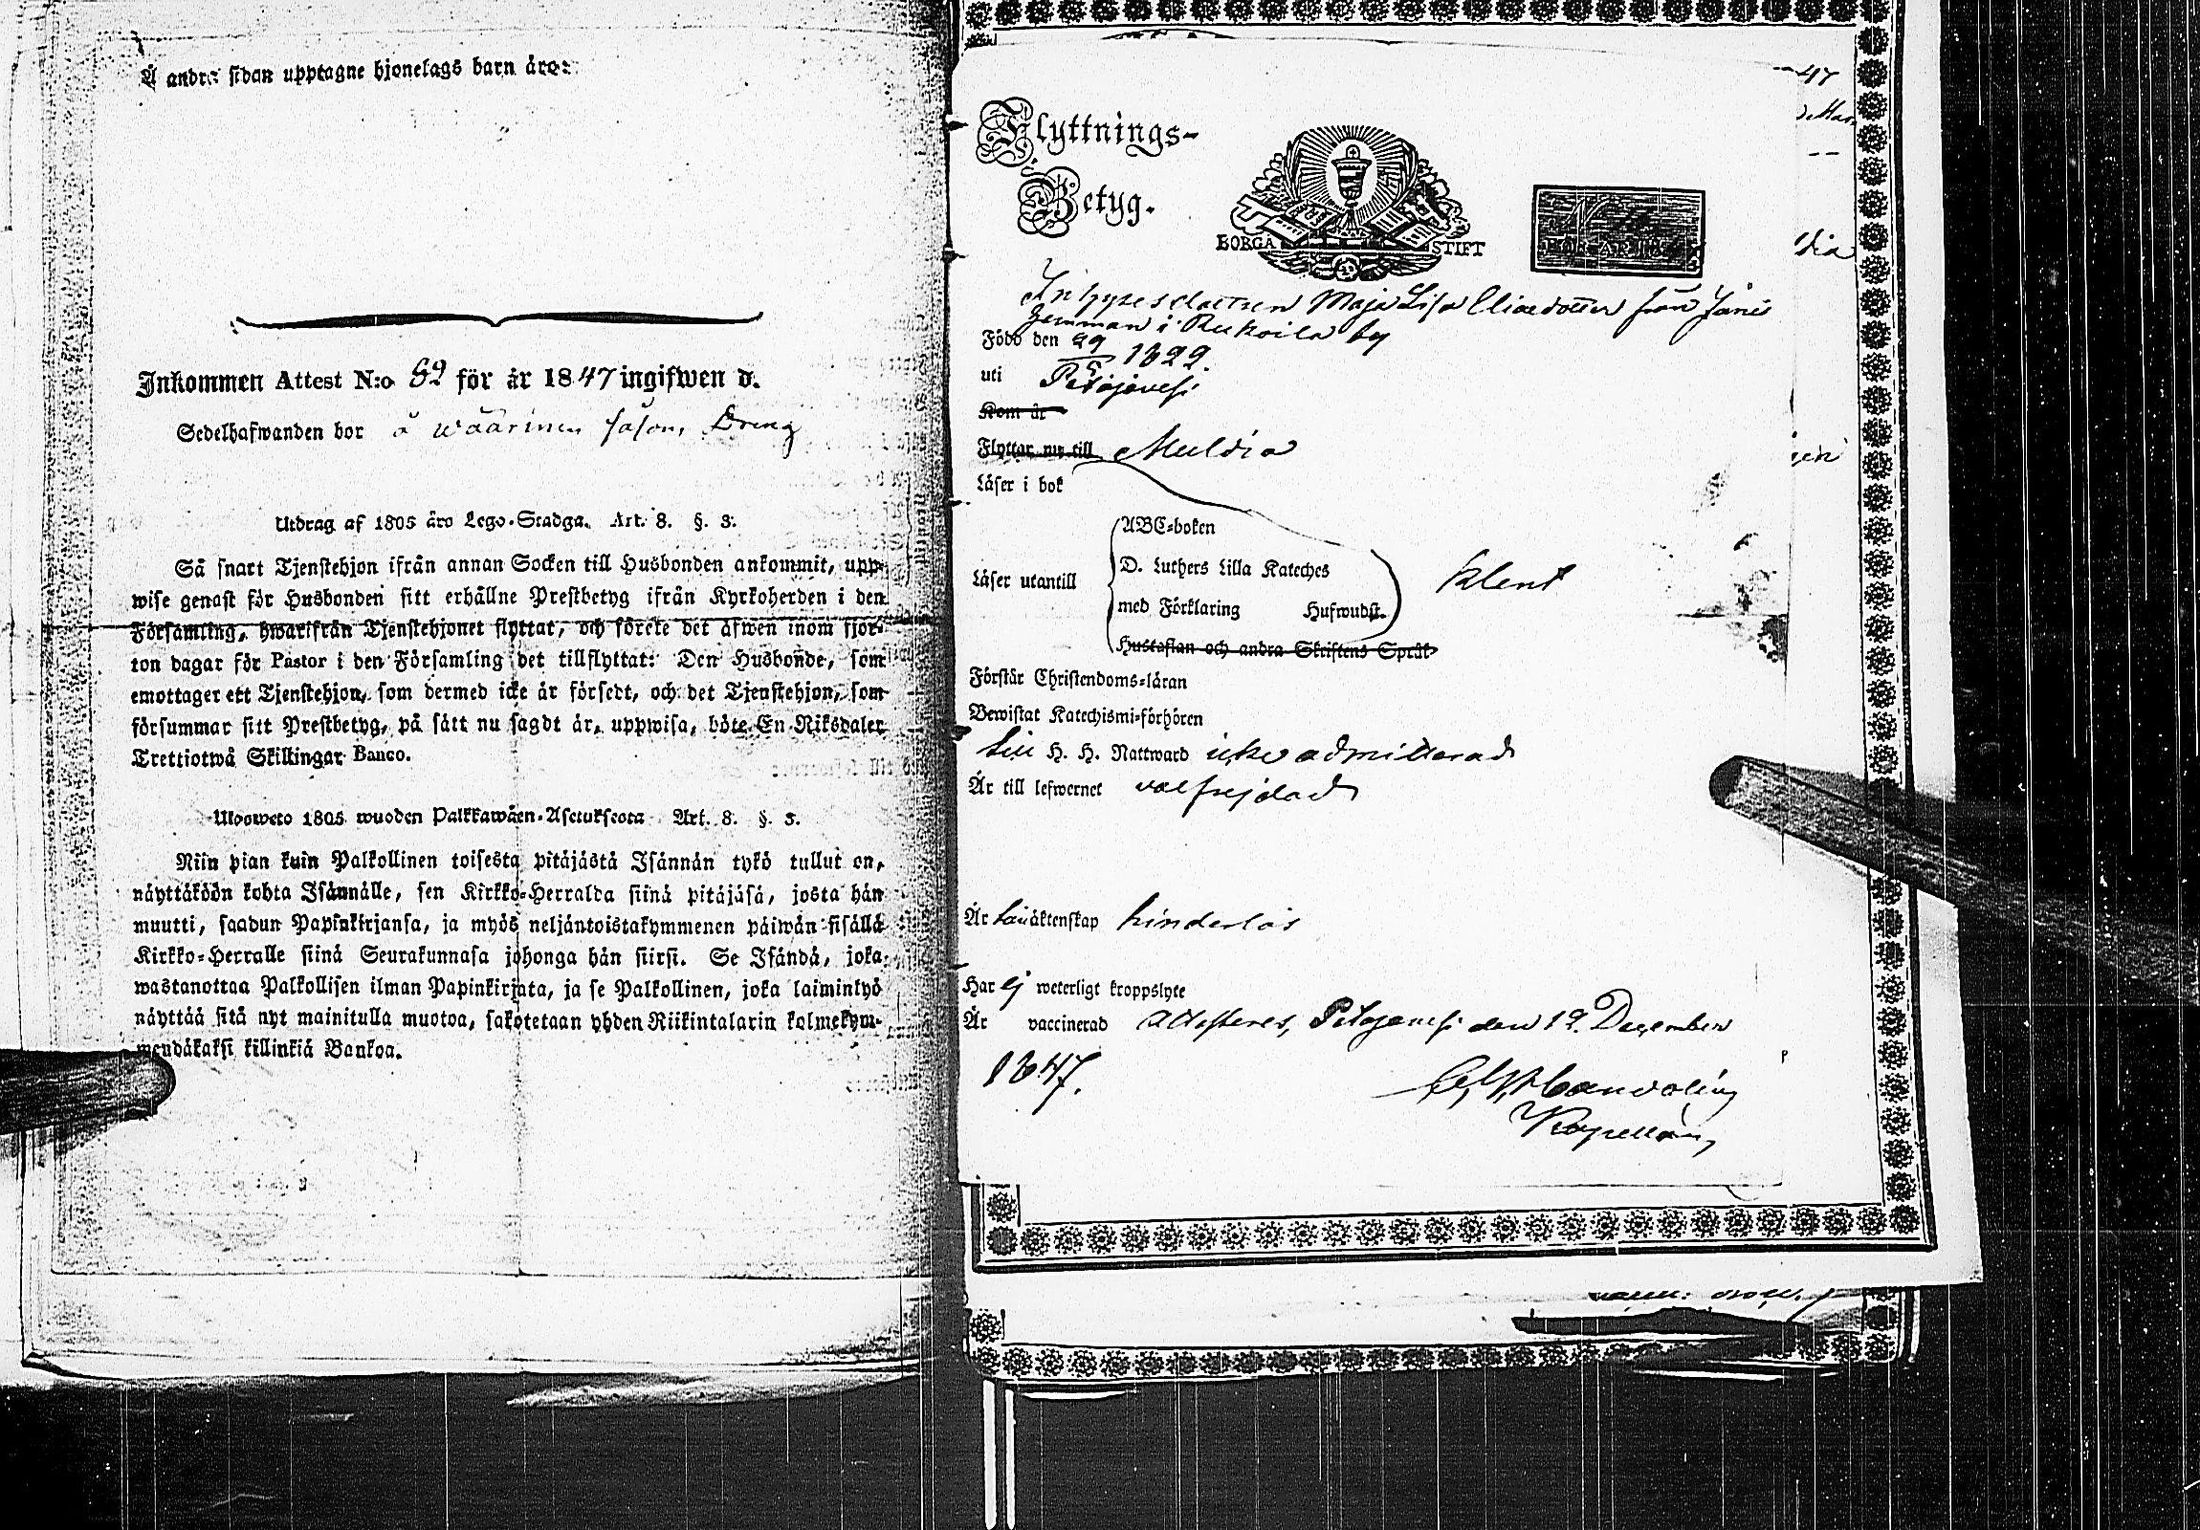 Å andra sidan upptagne hjonelags barn äro:
Inkommen Attest N:o 82 för år 1847 ingifwen d.
Sedelhafwanden bor å Wäärinen Dreng
Utdrag af 1805 års Lego-Stadga. Art. 8. §. 3.
Så snart Tjenstehjon ifrån annan Socken till Husbonden ankommit, upp-
wise genast för Husbonden sitt erhållne Prestbetyg ifrån Kyrkoherden i den
Församling, hwarifrån Tjenstehjonet flyttat, och förete det äfwen inom fjor-
ton dagar för Pastor i den Församling det tillflyttat: Den Husbonde, som
emottager ett Tjenstehjon, som dermed icke är försedt, och det Tjenstehjon, som
försummar sitt Prestbetyg, på sätt nu sagdt är, uppwisa, böte En Riksdaler
Trettiotwå Skillingar Banco.
Ulosweto 1805 wuoden Palkkawäen-Asetuksesta Art. 8. §. 3.
Niin pian kuin Palkollinen toisesta pitäjästä Isännän tykö tullut on,
näyttäköön kohta Isännälle, sen Kirkko-Herralda siinä pitäjäsä, josta hän
muutti, saadun Papinkirjansa, ja myös neljäntoistakymmenen päiwän sisällä
Kirkko-Herralle siinä Seurakunnasa johonga hän siirsi. Se Isändä, joka
wastanottaa Palkollisen ilman Papinkirjata, ja se Palkollinen, joka laiminlyö
näyttää sitä nyt mainitulla muotoa, sakotetaan yhden Riikintalarin kolmekym-
mendäkaksi killinkiä Bankoa.
Flyttnings-
Betyg.
BORGÅ STIFT
Inhysesdottren Maja Lisa Eliaedotter från
i by
Född den 29/5 1829.
uti Petäjävesi
Kom år
Flyttar nu till Muldia
Läser i bok
Läser utantill
ABC-boken
D. Luthers Lilla Kateches
med Förklaring Hufwudst.
Hustaflan och andra Skriftens Språk
klent
Förstår Christendoms-läran
Bewistat Katechismi-förhören
till H. H. Nattward icke admitterad
Är till lefwernet välfrejdad
Är till äktenskap hinderlös
Har ej weterligt kroppslyte
Är vaccinerad attesteres, Petäjävesi den 12 December
1847.
Kapellan,